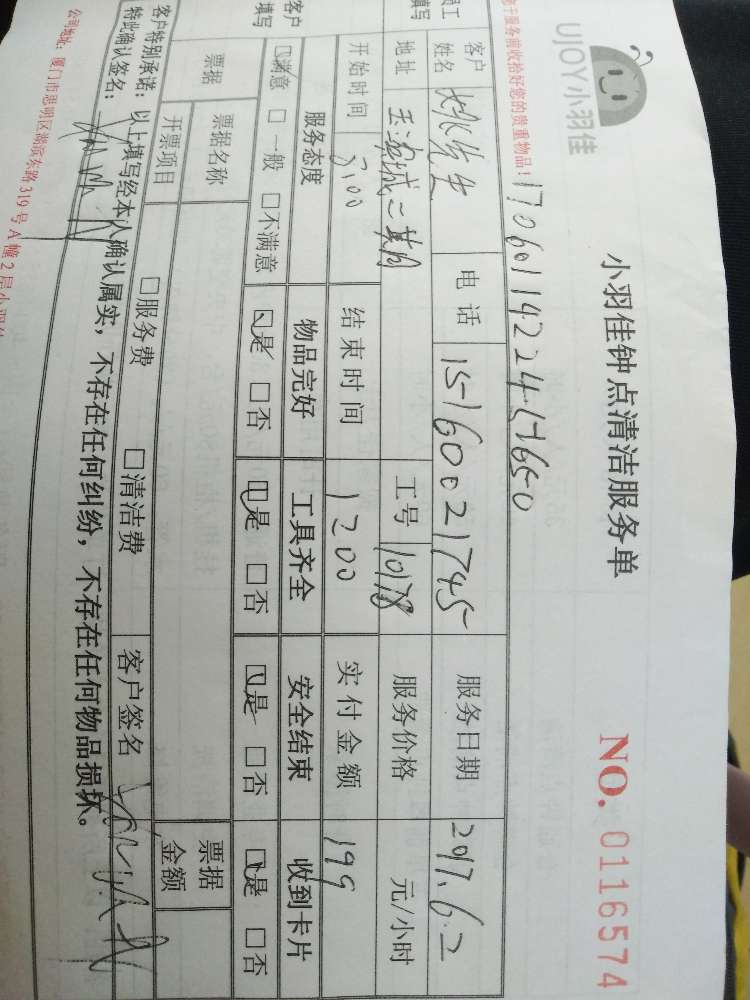 UJOY小羽佳
小羽佳钟点清洁服务单
NO. 0116574
服务前收拾好您的贵重物品！
员工填写
客户姓名 电话 15160021745 服务日期 2017.6.2
地址 工号 10178 服务价格 元/小时
开始时间 结束时间 1200 实付金额 199
客户填写
服务态度 物品完好 工具齐全 安全结束 收到卡片
☑满意 □一般 □不满意 ☑是 □否 ☑是 □否 ☑是 □否 ☑是 □否
票据 票据名称 票据金额
开票项目 □服务费 □清洁费 客户签名
客户特别承诺：以上填写经本人确认属实，不存在任何纠纷，不存在任何物品损坏。
特此确认签名：
公司地址：厦门市思明区湖滨东路319号A幢2层小羽佳